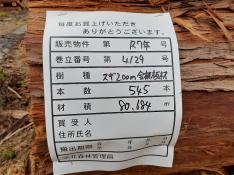 毎度お買上げいただき
ありがとうございます。
販売物件 第 R7年 号
巻立番号 第 4129 号
樹種 スギ2.00m 合板製材
本数 545 本
材積 80.684 m³
買受人
住所氏名
搬出期限
森林管理局